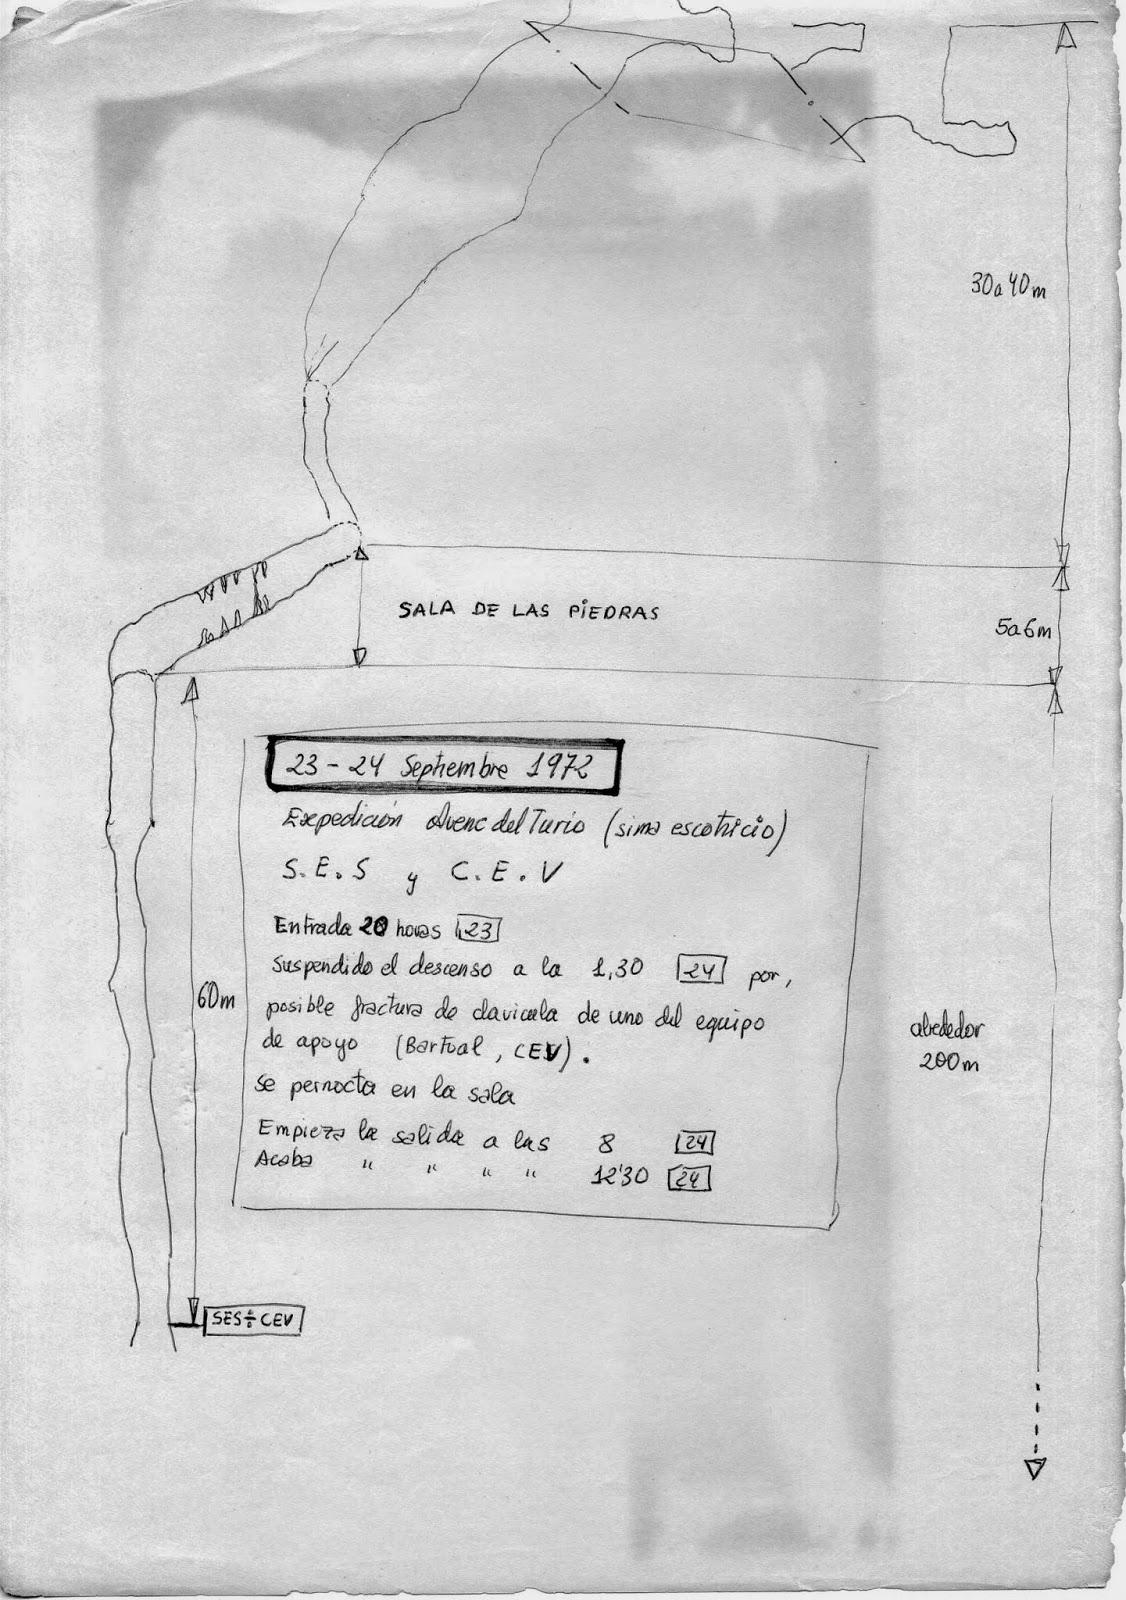 30 a 40 m
SALA DE LAS PIEDRAS
5 a 6 m
23 - 24 Septhembre 1972
Expedición Avenc del Turio (sima escotricio)
S.E.S y C.E.V
Entrada 20 horas 23
Suspendido el descenso a la 1,30 24 por,
posible fractura de clavicula de uno del equipo
de apoyo (Bartual, CEV).
Se pernocta en la sala
Empieza la salida a las 8 24
Acaba " " " " 12'30 24
60m
alrededor
200m
SES÷CEV